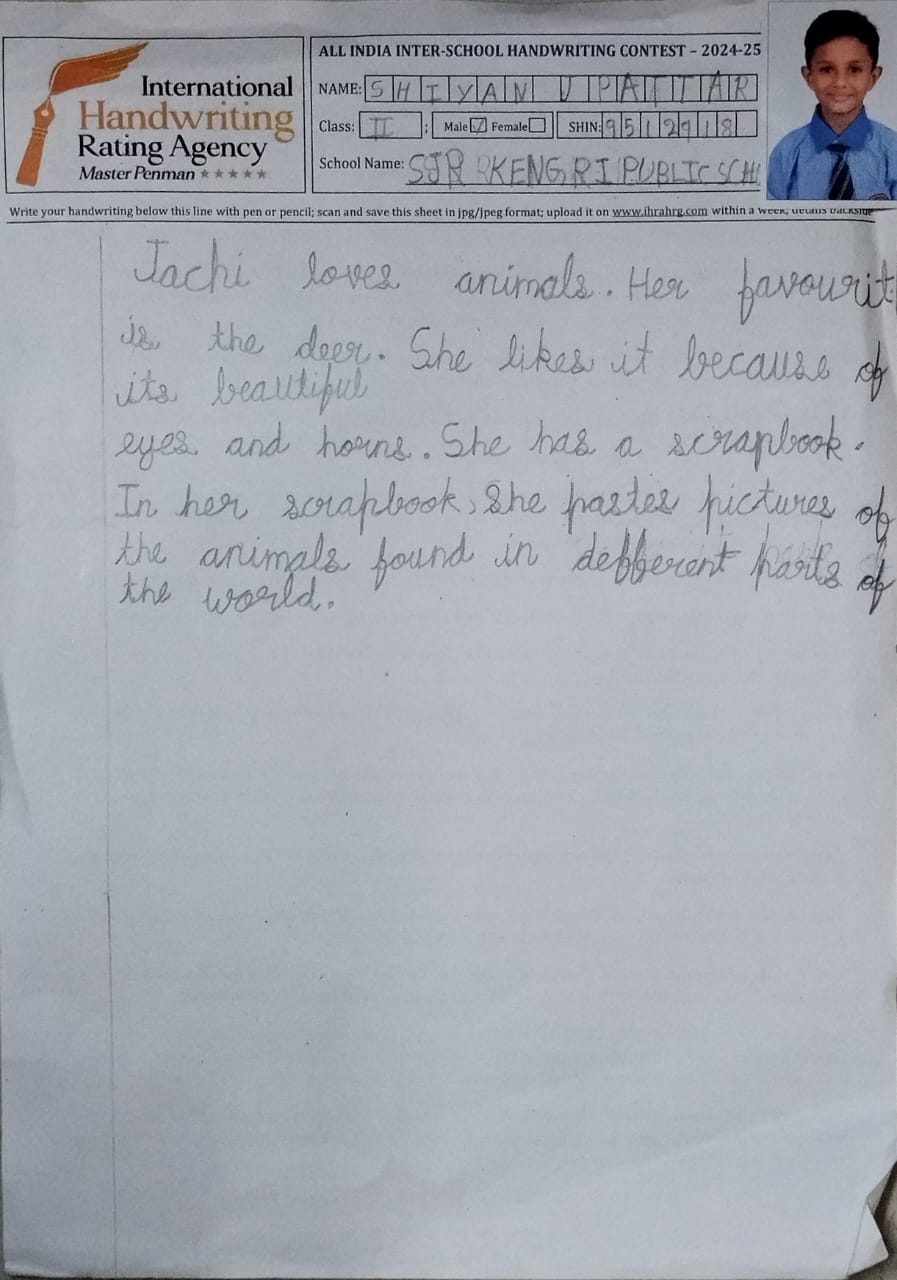 International
Handwriting
Rating Agency
Master Penman ★★★★★
ALL INDIA INTER-SCHOOL HANDWRITING CONTEST – 2024-25
NAME: SHIYAN V PATTAR
Class: II ; Male ☑ Female ☐ SHIN: 9512918
School Name: SJR KENGRI PUBLIC SCH
Write your handwriting below this line with pen or pencil; scan and save this sheet in jpg/jpeg format; upload it on www.ihrahrg.com within a week; details backside
Jachi loves animals. Her favourit
is the deer. She likes it because of
its beautiful
eyes and horns. She has a scrapbook.
In her scrapbook, She pastes pictures of
the animals found in defferent parts of
the world.